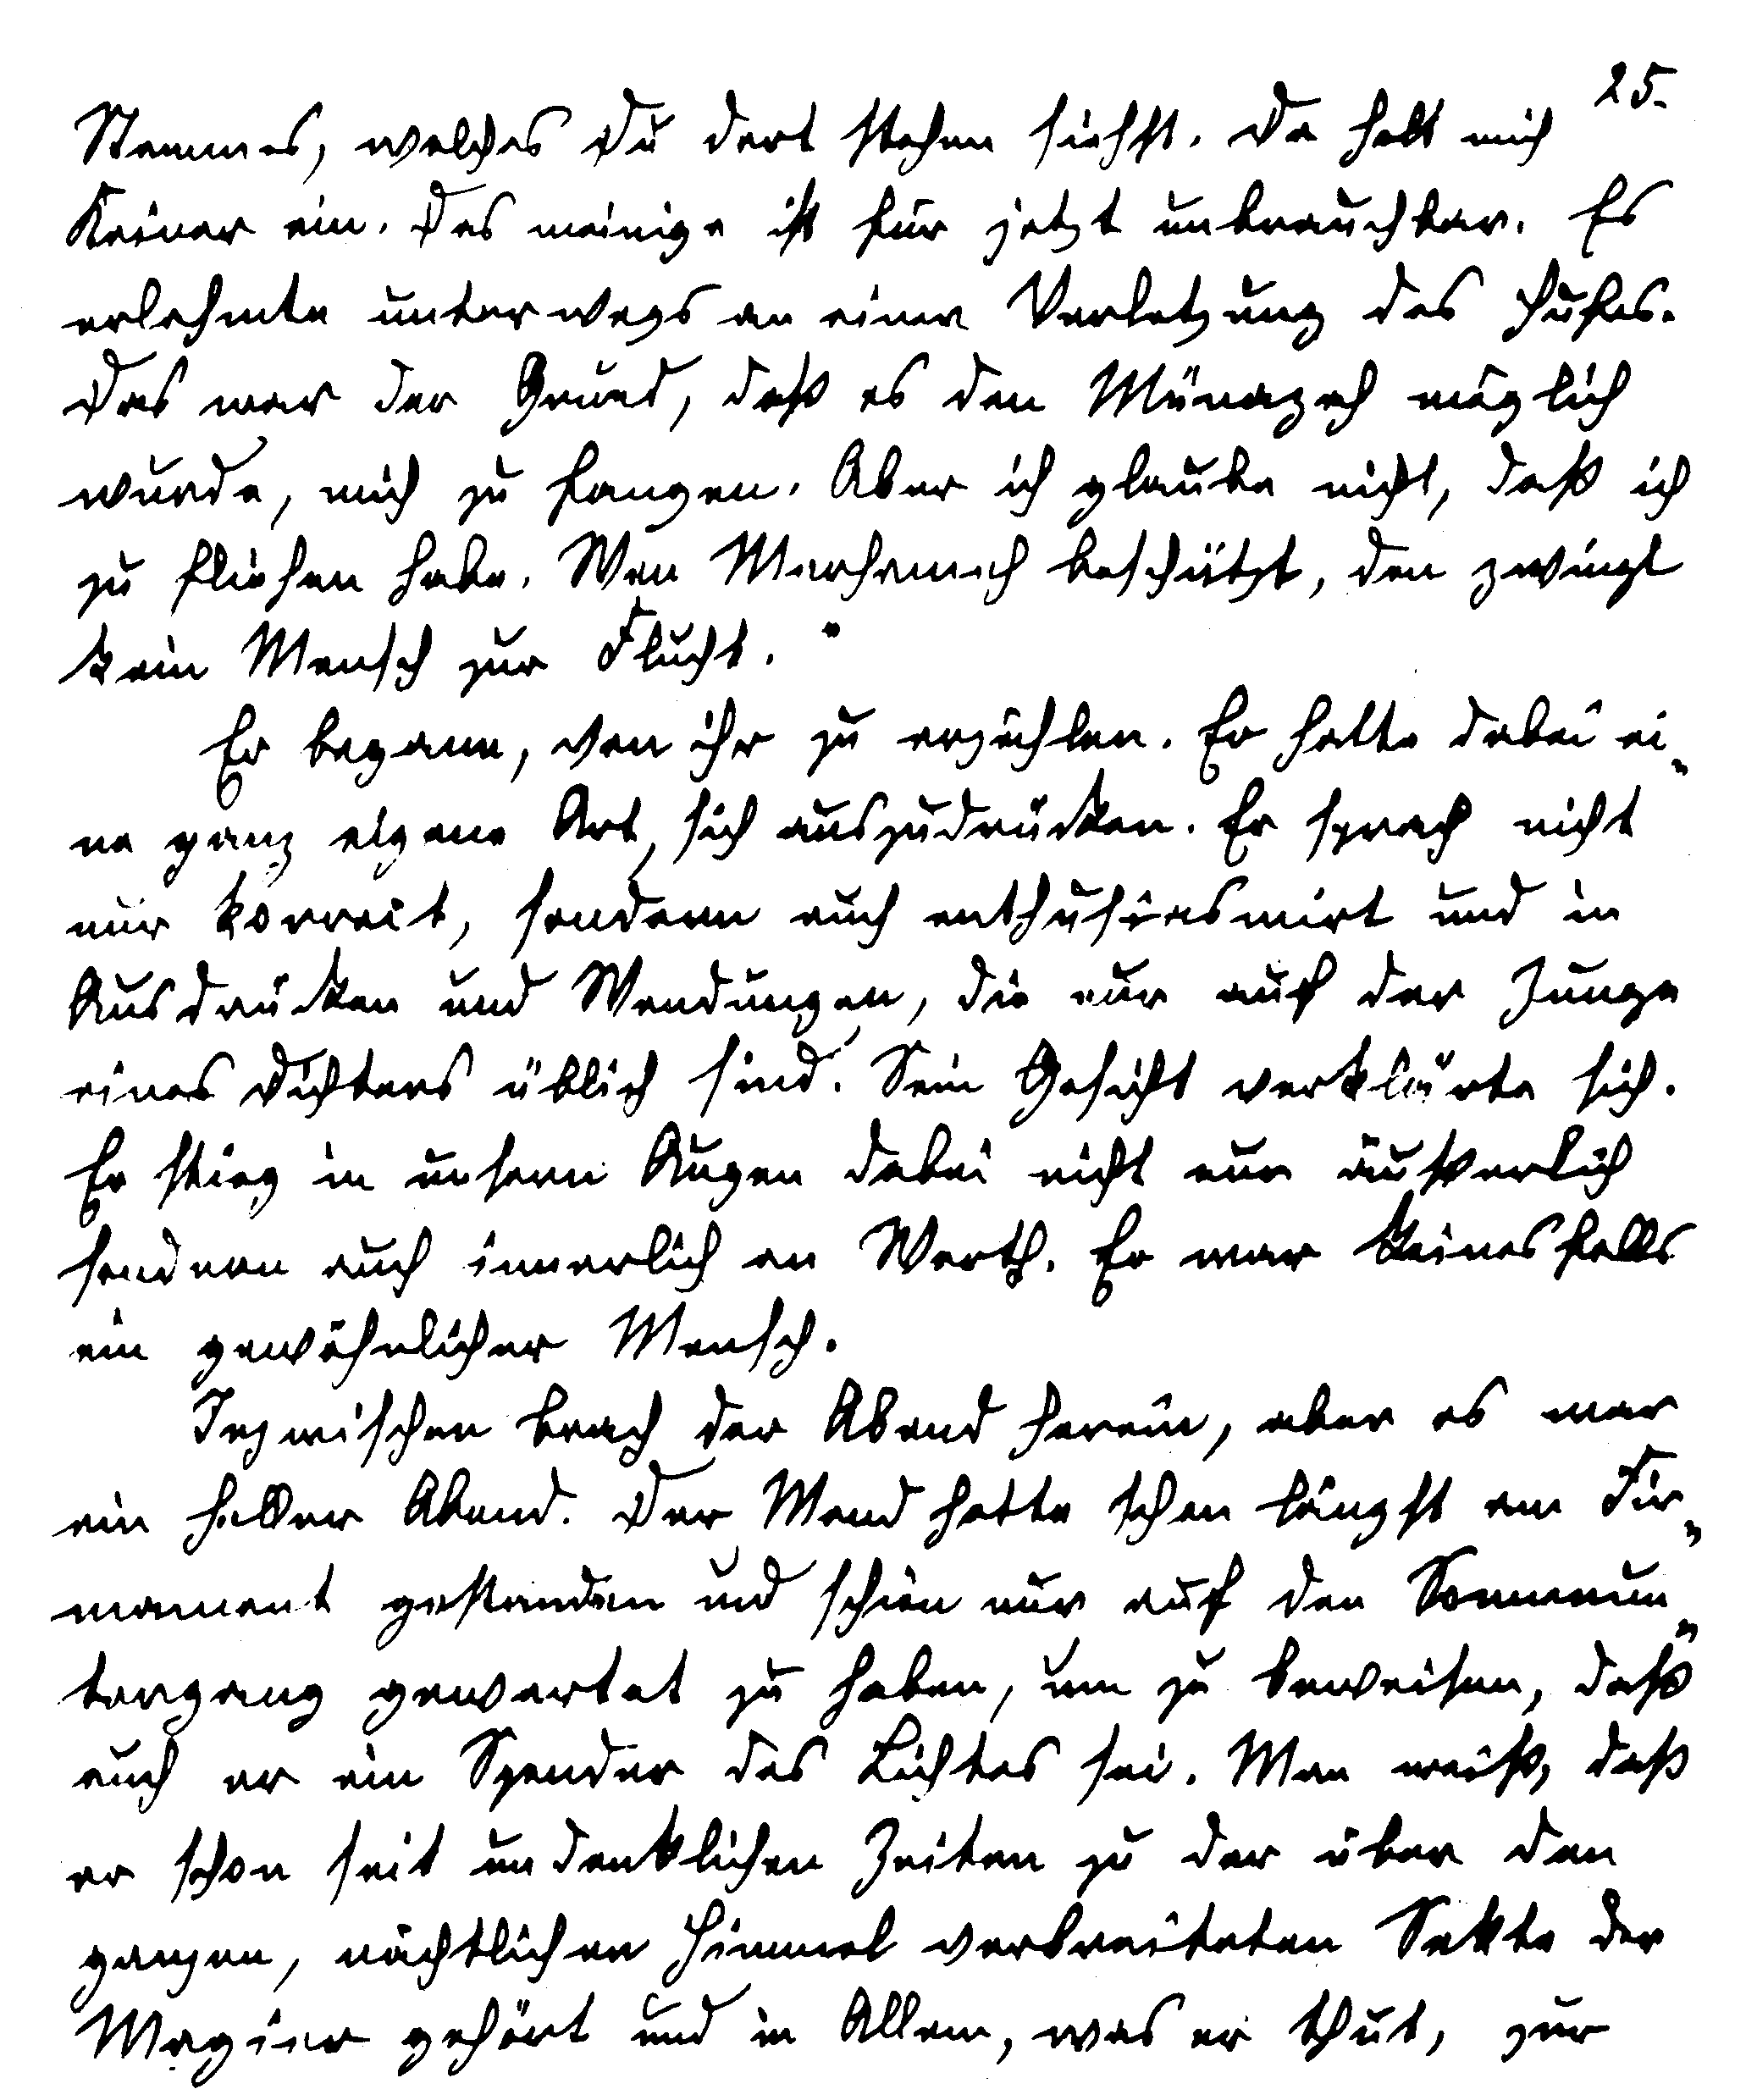 25.
Stammes, welches Du dort stehen siehst. Da holt mich
Keiner ein. Das meinige ist für jetzt unbrauchbar. Es
erlahmte unterwegs an einer Verletzung des Hufes.
Das war der Grund, daß es den Münazah möglich
wurde, mich zu fangen. Aber ich glaube nicht, daß ich
zu fliehen habe. Wen Marhameh beschützt, den zwingt
kein Mensch zur Flucht."
Er begann, von ihr zu erzählen. Er hatte dabei ei-
ne ganz eigene Art, sich auszudrücken. Er sprach nicht
nur korreit, sondern auch enthusiasmirt und in
Ausdrücken und Wendungen, die nur auf der Zunge
eines Dichters üblich sind. Sein Gesicht verklärte sich.
Er stieg in unsern Augen dabei nicht nur äußerlich
sondern auch innerlich an Werth. Er war keinesfalls
ein gewöhnlicher Mensch.
Inzwischen brach der Abend herein, aber es war
ein heller Abend. Der Mond hatte schon längst am Fir-
mament gestanden und schien nur auf den Sonnenun-
tergang gewartet zu haben, um zu beweisen, daß
auch er ein Spender des Lichtes sei. Man weiß, daß
er schon seit undenklichen Zeiten zu der über den
ganzen, nächtlichen Himmel verbreiteten Sekte der
Magier gehört und in Allem, was er thut, zur